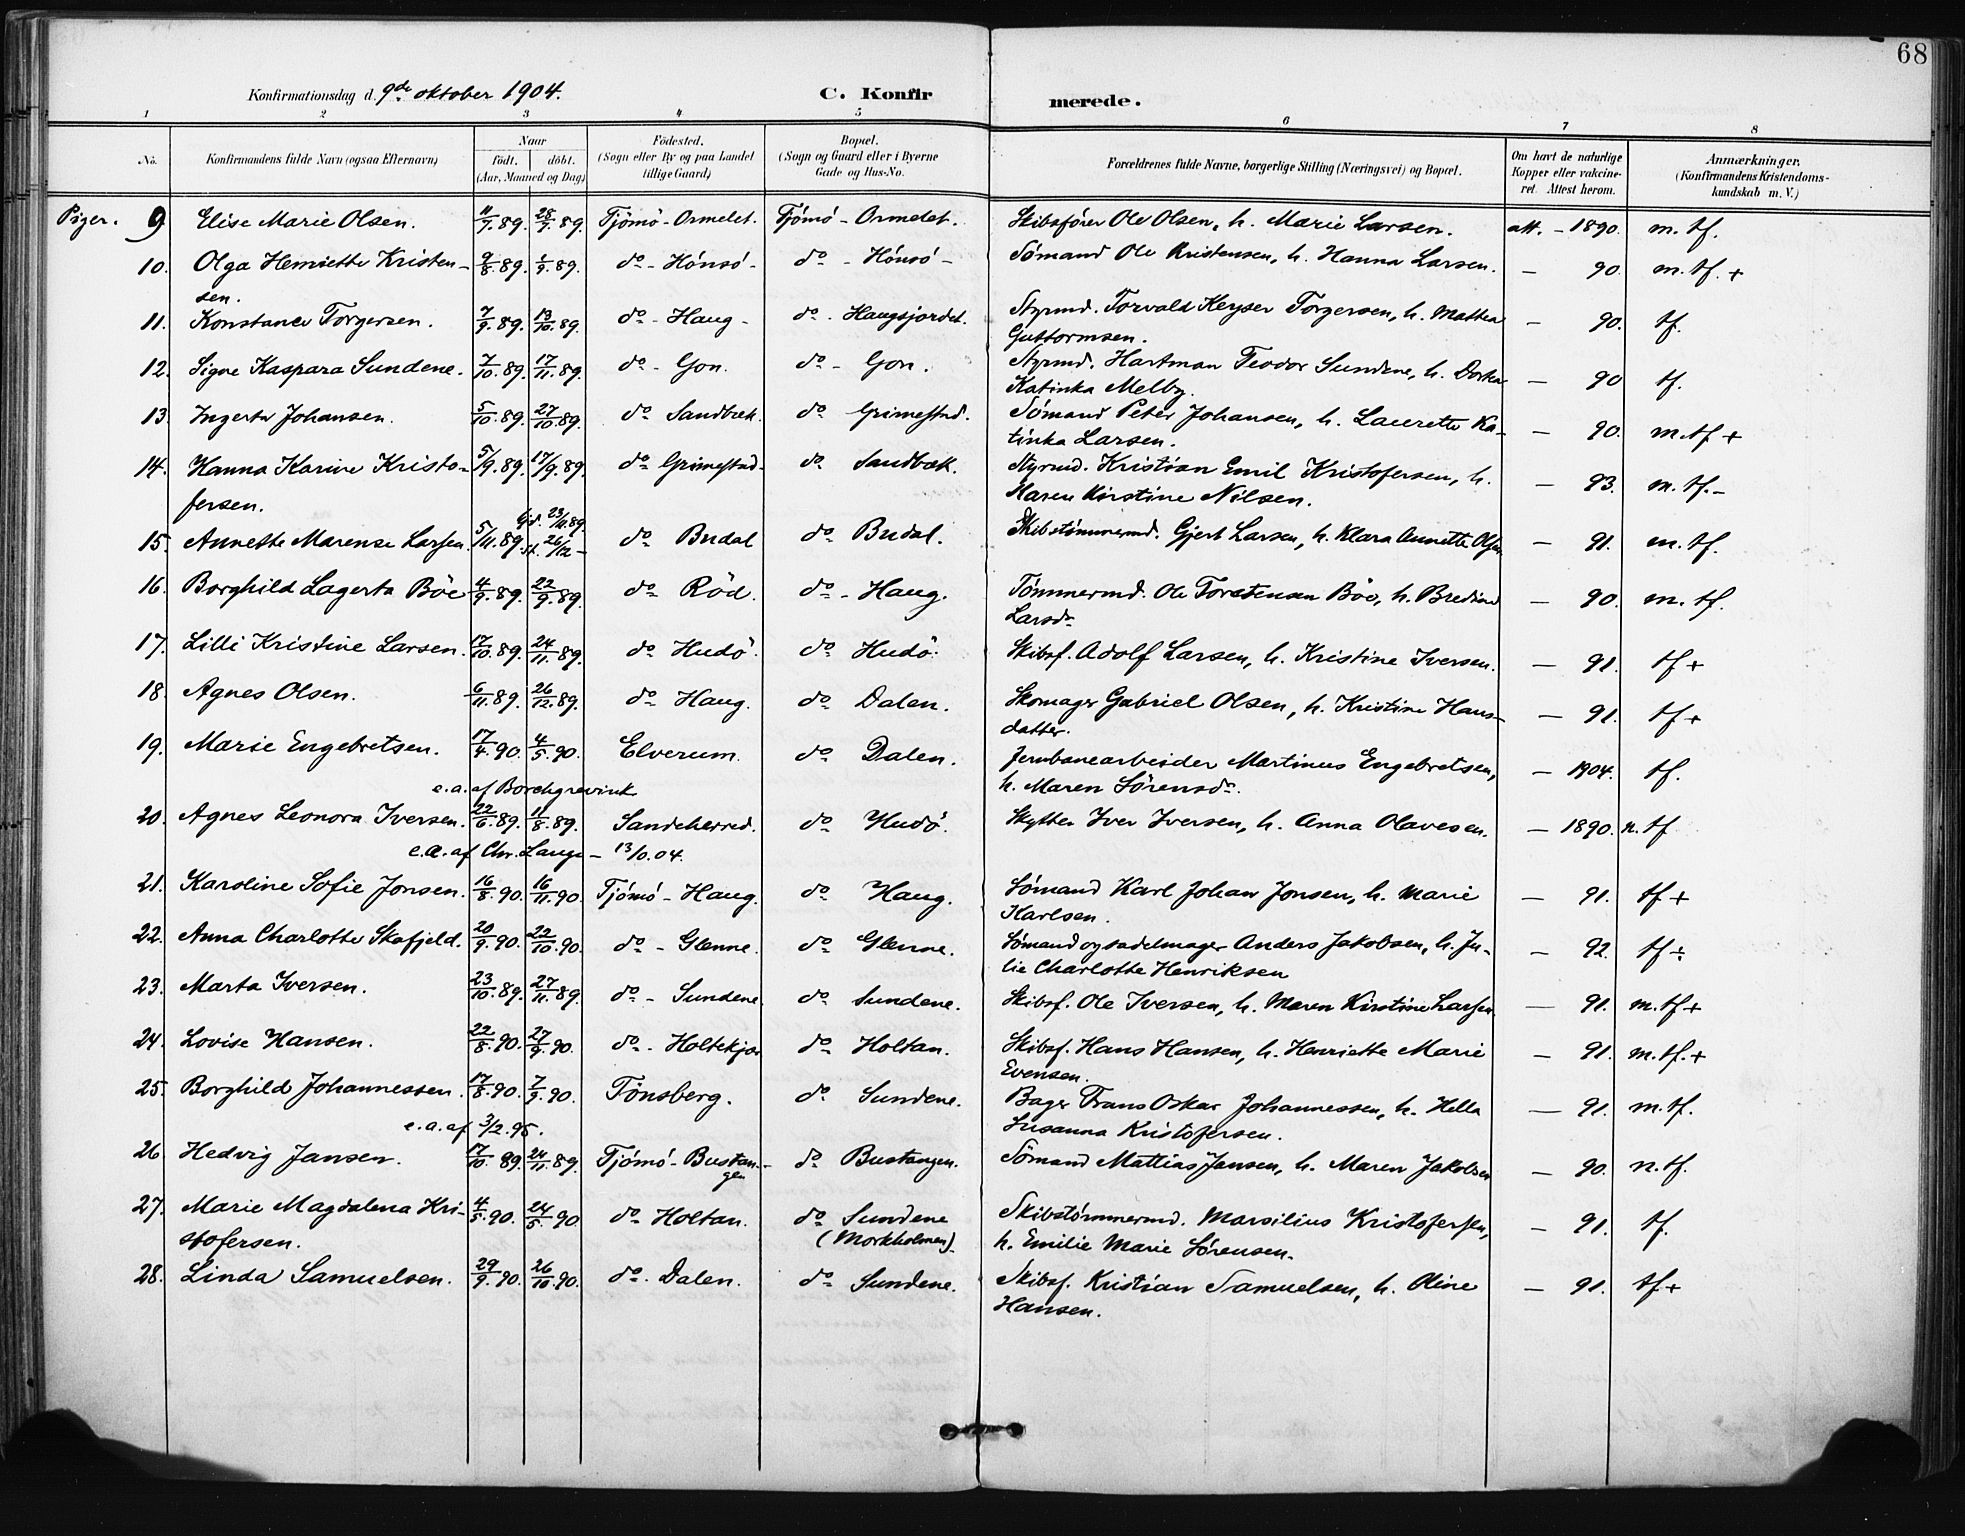 68
Konfirmationsdag d. 9de oktober 1904. C. Konfirmerede.
1 2 3 4 5 6 7 8
No. Konfirmandens fulde Navn (ogsaa Efternavn) Naar födt. döbt. (Aar, Maaned og Dag) Födested. (Sogn eller By og paa Landet tillige Gaard) Bopæl. (Sogn og Gaard eller i Byerne Gade og Hus-No. Forældrenes fulde Navne, borgerlige Stilling (Næringsvei) og Bopæl. Om havt de naturlige Kopper eller vakcineret. Attest herom. Anmærkninger. (Konfirmandens Kristendomskundskab m. V.)
Piger. 9 Elise Marie Olsen. 11/9.89. 28/9.89. Tjömö - Ormelet. Tjömö - Ormelet. Skibsförer Ole Olsen, h. Marie Larsen. att. - 1890. m. tf.
10. Olga Henriette Kristen- 9/8.89. 1/9.89. do - Hönsö - do - Hönsö - Sömand Ole Kristensen, h. Hanna Larsen. - 90. m. tf. +
sen.
11. Konstance Torgersen. 7/9.89. 13/10.89. do - Haug - do - Haugsjordet. Styrmd. Torvald Keyser Torgersen, h. Mathea - 90. tf.
Guttormsen.
12. Signe Kaspara Sundene. 7/10.89. 17/11.89. do - Gon. do - Gon. Styrmd. Hartman Teodor Sundene, h. Dorthea - 90 tf.
Katinka Melby.
13. Ingerta Johansen. 5/10.89. 27/10.89. do Sandbæk. do Grimestad. Sömand Peter Johansen, h. Laurette Ka- - 90. m. tf +
tinka Larsen.
14. Hanna Karine Kristo- 5/9.89. 17/9.89. do Grimestad. do Sandbæk. Styrmd. Kristian Emil Kristofersen, h. - 93. m. tf. -
fersen. Karen Kirstine Nilsen.
Gjd. 23/11.89.
15. Annette Marense Larsen. 5/11.89. st. 26/12 - do Budal do Budal. Skibstömmermd. Gjert Larsen, h. Klara Annette Olsen - 91. m. tf.
16. Borghild Lagerta Böe 4/9.89. 22/9.89. do Röd. do - Haug. Tömmermd. Ole Torstensen Böe, h. Bredine - 90. m. tf.
Larsdr.
17. Lilli Kristine Larsen. 17/10.89. 24/11.89. do Hudö. do Hudö. Skibsf. Adolf Larsen, h. Kristine Iversen. - 91. tf +
18. Agnes Olsen. 6/11.89. 26/12.89. do Haug. do Dalen. Skomager Gabriel Olsen, h. Kristine Hans- - 91. tf +
datter.
19. Marie Engebretsen. 17/4.90. 4/5.90. Elverum. do Dalen. Jernbanearbeider Martinus Engebretsen, - 1904. tf.
e.a. af Borchgrevink h. Maren Sörensdr.
20. Agnes Leonora Iversen. 22/6.89. 11/8.89. Sandeherred. do Hudö. Skytter Iver Iversen, h. Anna Olavesen. - 1890. n. tf
e.a. af Chr. Lange - 13/10.04.
21. Karoline Sofie Jonsen. 16/8.90. 16/11.90. Tjömö - Haug. do Haug. Sömand Karl Johan Jonsen, h. Marie - 91. tf +
Karlsen.
22. Anna Charlotte Skafjeld. 20/9.90. 22/10.90. do - Glenne. do Glenne. Sömand og sadelmager Anders Jakobsen, h. Ju- - 92. tf ÷
lie Charlotte Henriksen
23. Marta Iversen. 23/10.89. 27/11.89. do - Sundene do Sundene. Skibsf. Ole Iversen, h. Maren Kirstine Larsen. - 91. m. tf +
24. Lovise Hansen. 22/8.90. 27/9.90. do - Holtekjær do Holtan. Skibsf. Hans Hansen, h. Henriette Marie - 91. m. tf. +
Evensen.
25. Borghild Johannessen. 17/8.90. 7/9.90. Tönsberg. do Sundene. Bager Frans Oskar Johannessen, h. Hella - 91. m. tf.
e.a. af 3/2.95. Susanna Kristofersen.
26 Hedvig Jansen. 17/10.89. 24/11.89. Tjömö - Bustan- do Bustangen. Sömand Mattias Jansen, h. Maren Jakobsen - 90. n. tf.
gen
27. Marie Magdalena Kri- 4/5.90. 24/5.90 do Holtan. do Sundene Skibstömmermd. Marsilius Kristofersen, - 91. tf.
stofersen. (Morkholmen). h. Emilie Marie Sörensen.
28. Linda Samuelsen. 29/9.90. 26/10.90. do. Dalen. do Sundene. Skibsf. Kristian Samuelsen, h. Oline - 91. tf +
Hansen.